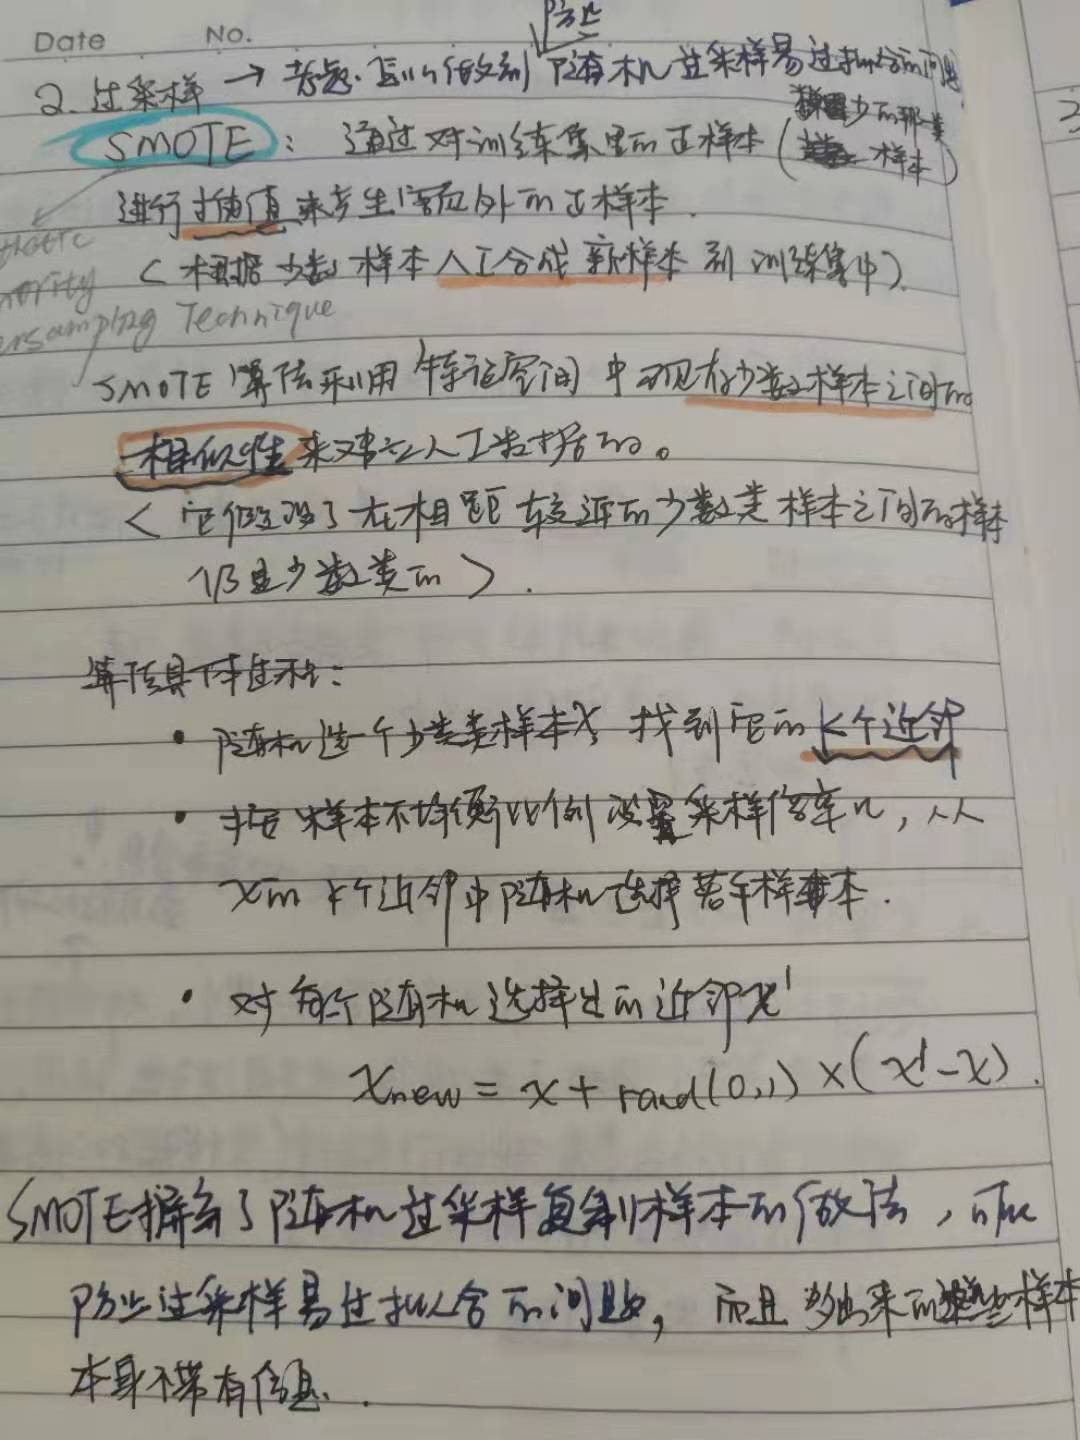 Date No.
防止
2. 过采样 → 考虑. 怎么做到 随机过采样易过拟合的问题
少的那类
SMOTE : 通过对训练集里的正样本 ( 样本 )
进行插值来产生额外的正样本.
< 根据少数样本人工合成新样本到训练集中 >
thetic
nority
ersampling Technique
SMOTE 算法利用特征空间中现有少数样本之间的
相似性来建立人工数据的。
< 它假设了在相距较近的少数类样本之间的样本
仍是少数类的 > .
算法具体过程:
• 随机选一个少类类样本x, 找到它的 k个近邻
• 据样本不均衡比例设置采样倍率n, 从
x的k个近邻中随机选择若干样本.
• 对每个随机选择出的近邻x'
xnew = x + rand(0,1) × (x' - x) .
SMOTE摒弃了随机过采样复制样本的做法, 可以
防止过采样易过拟合的问题, 而且多出来的这些样本
本身不带有信息. .